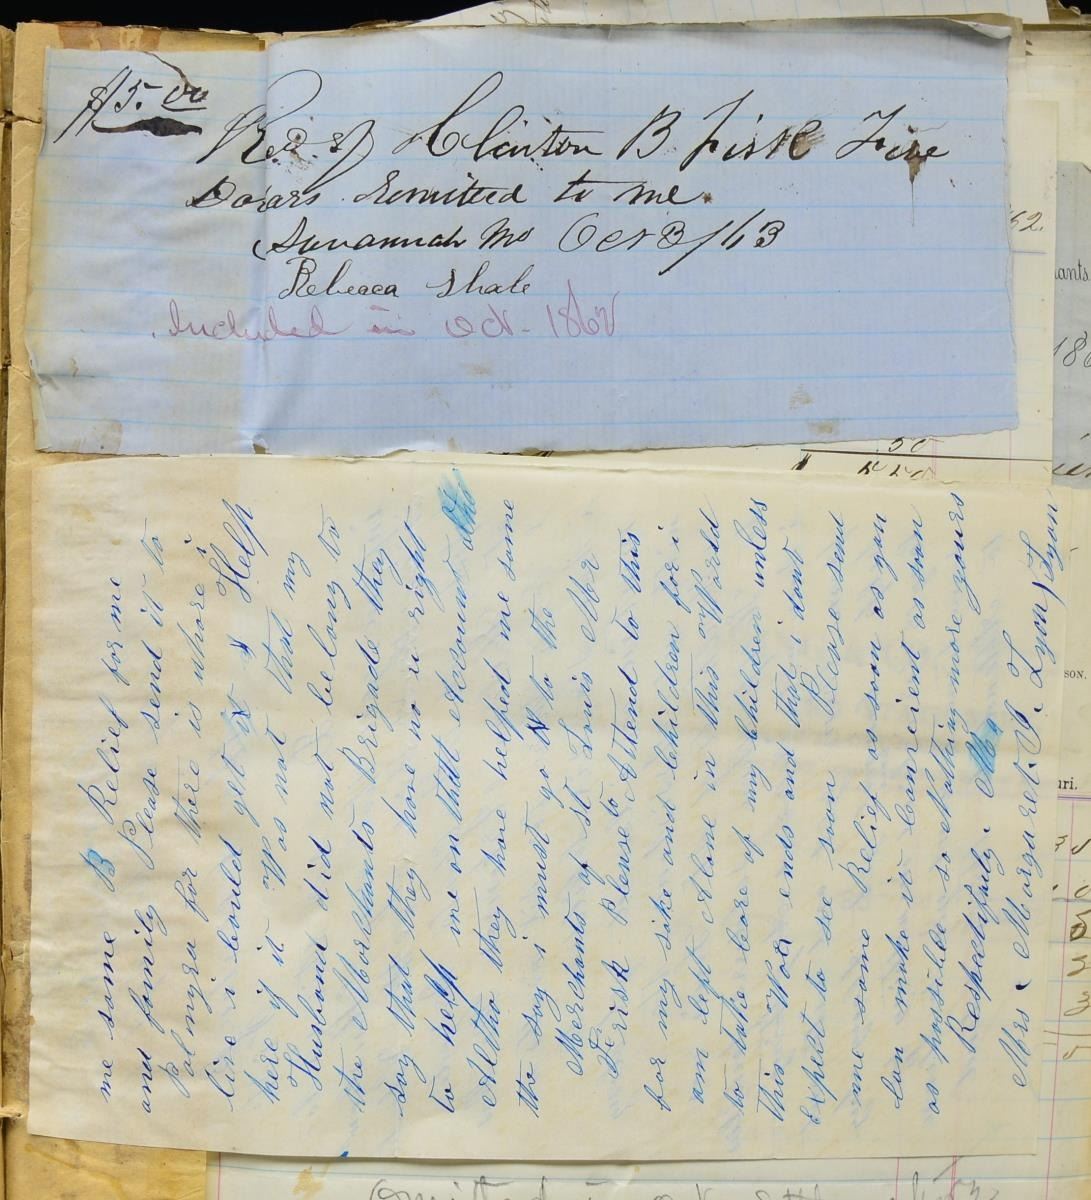 $5.00
Recd of Clinton B Fisk Five
Dolars remitted to me
Savannah Mo Oct 3/63
Rebecca Shale
Included in Oct- 1862
me some B Relief for me
and family Please send it to
Palmyra for there is whare i
live i Could get it & Help
here if it Was not that my
Husband did not belong to
the Merchants Brigade they
say that they have no u right
to help me on that Account
Altho they have helped me some
tho say i must go to the
Merchants of St Louis Mr
Ferisk Please to Attend to this
for my sike and Children for i
am left Alone in this World
to take Care of my Children unless
this War ends and that i dont
expect to see soon Please send
me some Relief as soon as you
Can make it Convenient as soon
as possible so Nothing more yours
Respectifuly. Mr
Mrs. Margaret. J. Lyon Lyon
50
ants
186
SON.
uri.